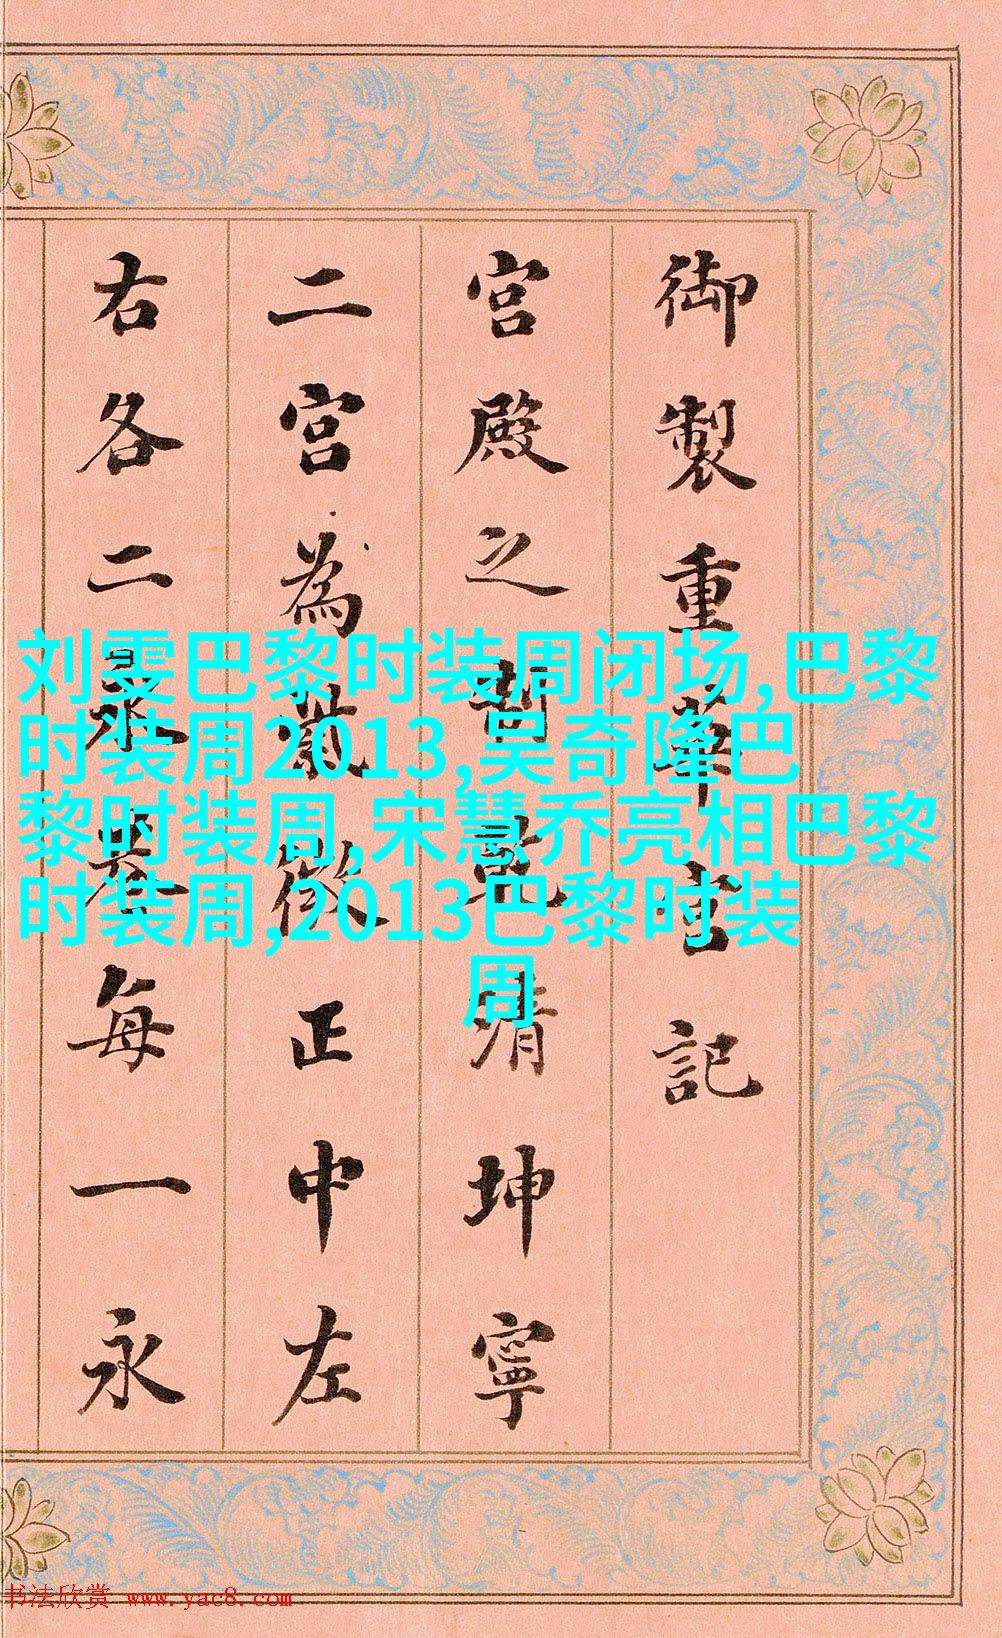 御製重華宮記
宮殿之制乾清坤寧
二宮為紫微正中左
右各二永巷每一永
刘雯巴黎时装周闭场,巴黎
时装周2013,吴奇隆巴
黎时装周,宋慧乔亮相巴黎
时装周,2013巴黎时装
周
书法欣赏 www.yac8.com